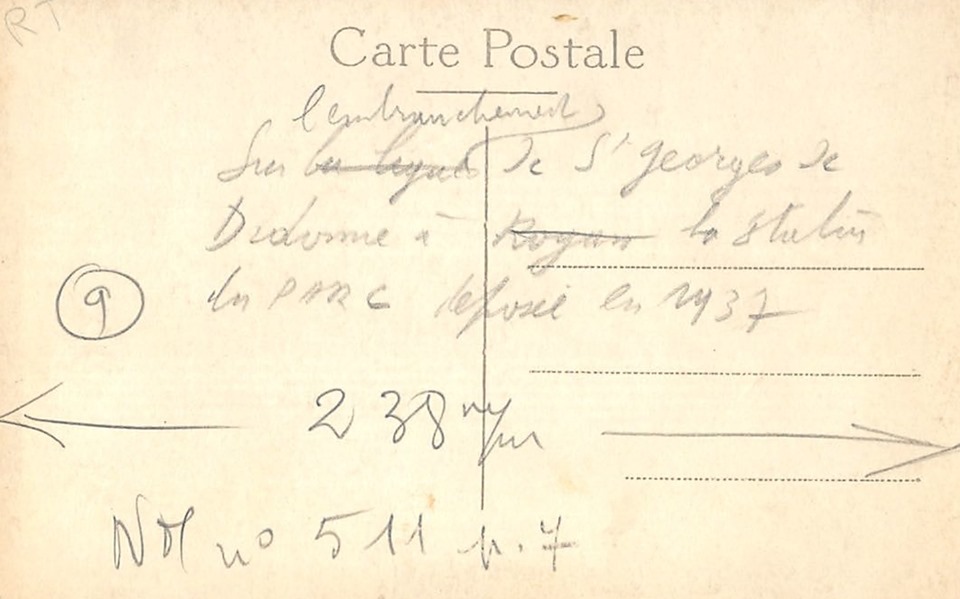 RT
Carte Postale
l'embranchement
Sur la ligne de St Georges de
Didonne à Royan la station
du PARC déposée en 1937
9
238 m/m
NM n° 511 p. 7